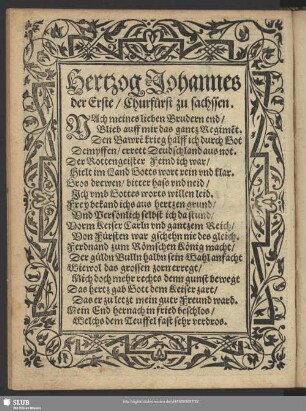 Hertzog Johannes
der Erste / Churfürst zu sachssen.
NAch meines lieben Brudern end /
Blieb auff mir das gantz Regimēt.
Den Bawrē krieg halff ich durch Got
Dempffen / errett Deudschland aus not.
Der Rottengeister Feind ich war /
Hielt im Land Gotts wort rein vnd klar.
Gros drewen / bitter hass vnd neid /
Ich vmb Gottes worts willen leid.
Frey bekand ichs aus hertzen grund /
Vnd Persönlich selbst ich da stund /
Vorm Keiser Carln vnd gantzem Reich /
Von Fürsten war gschehn nie des gleich.
Ferdnand zum Römschen König macht /
Der güldn Bulln halbn sein Wahl anfacht
Wiewol das grossen zorn erregt /
Mich doch mehr rechts denn gunst bewegt
Das hertz gab Gott dem Keiser zart /
Das er zu letzt mein guter Freund ward.
Mein End hernach in fried beschlos /
Welchs dem Teuffel fast sehr verdros.
SLUB